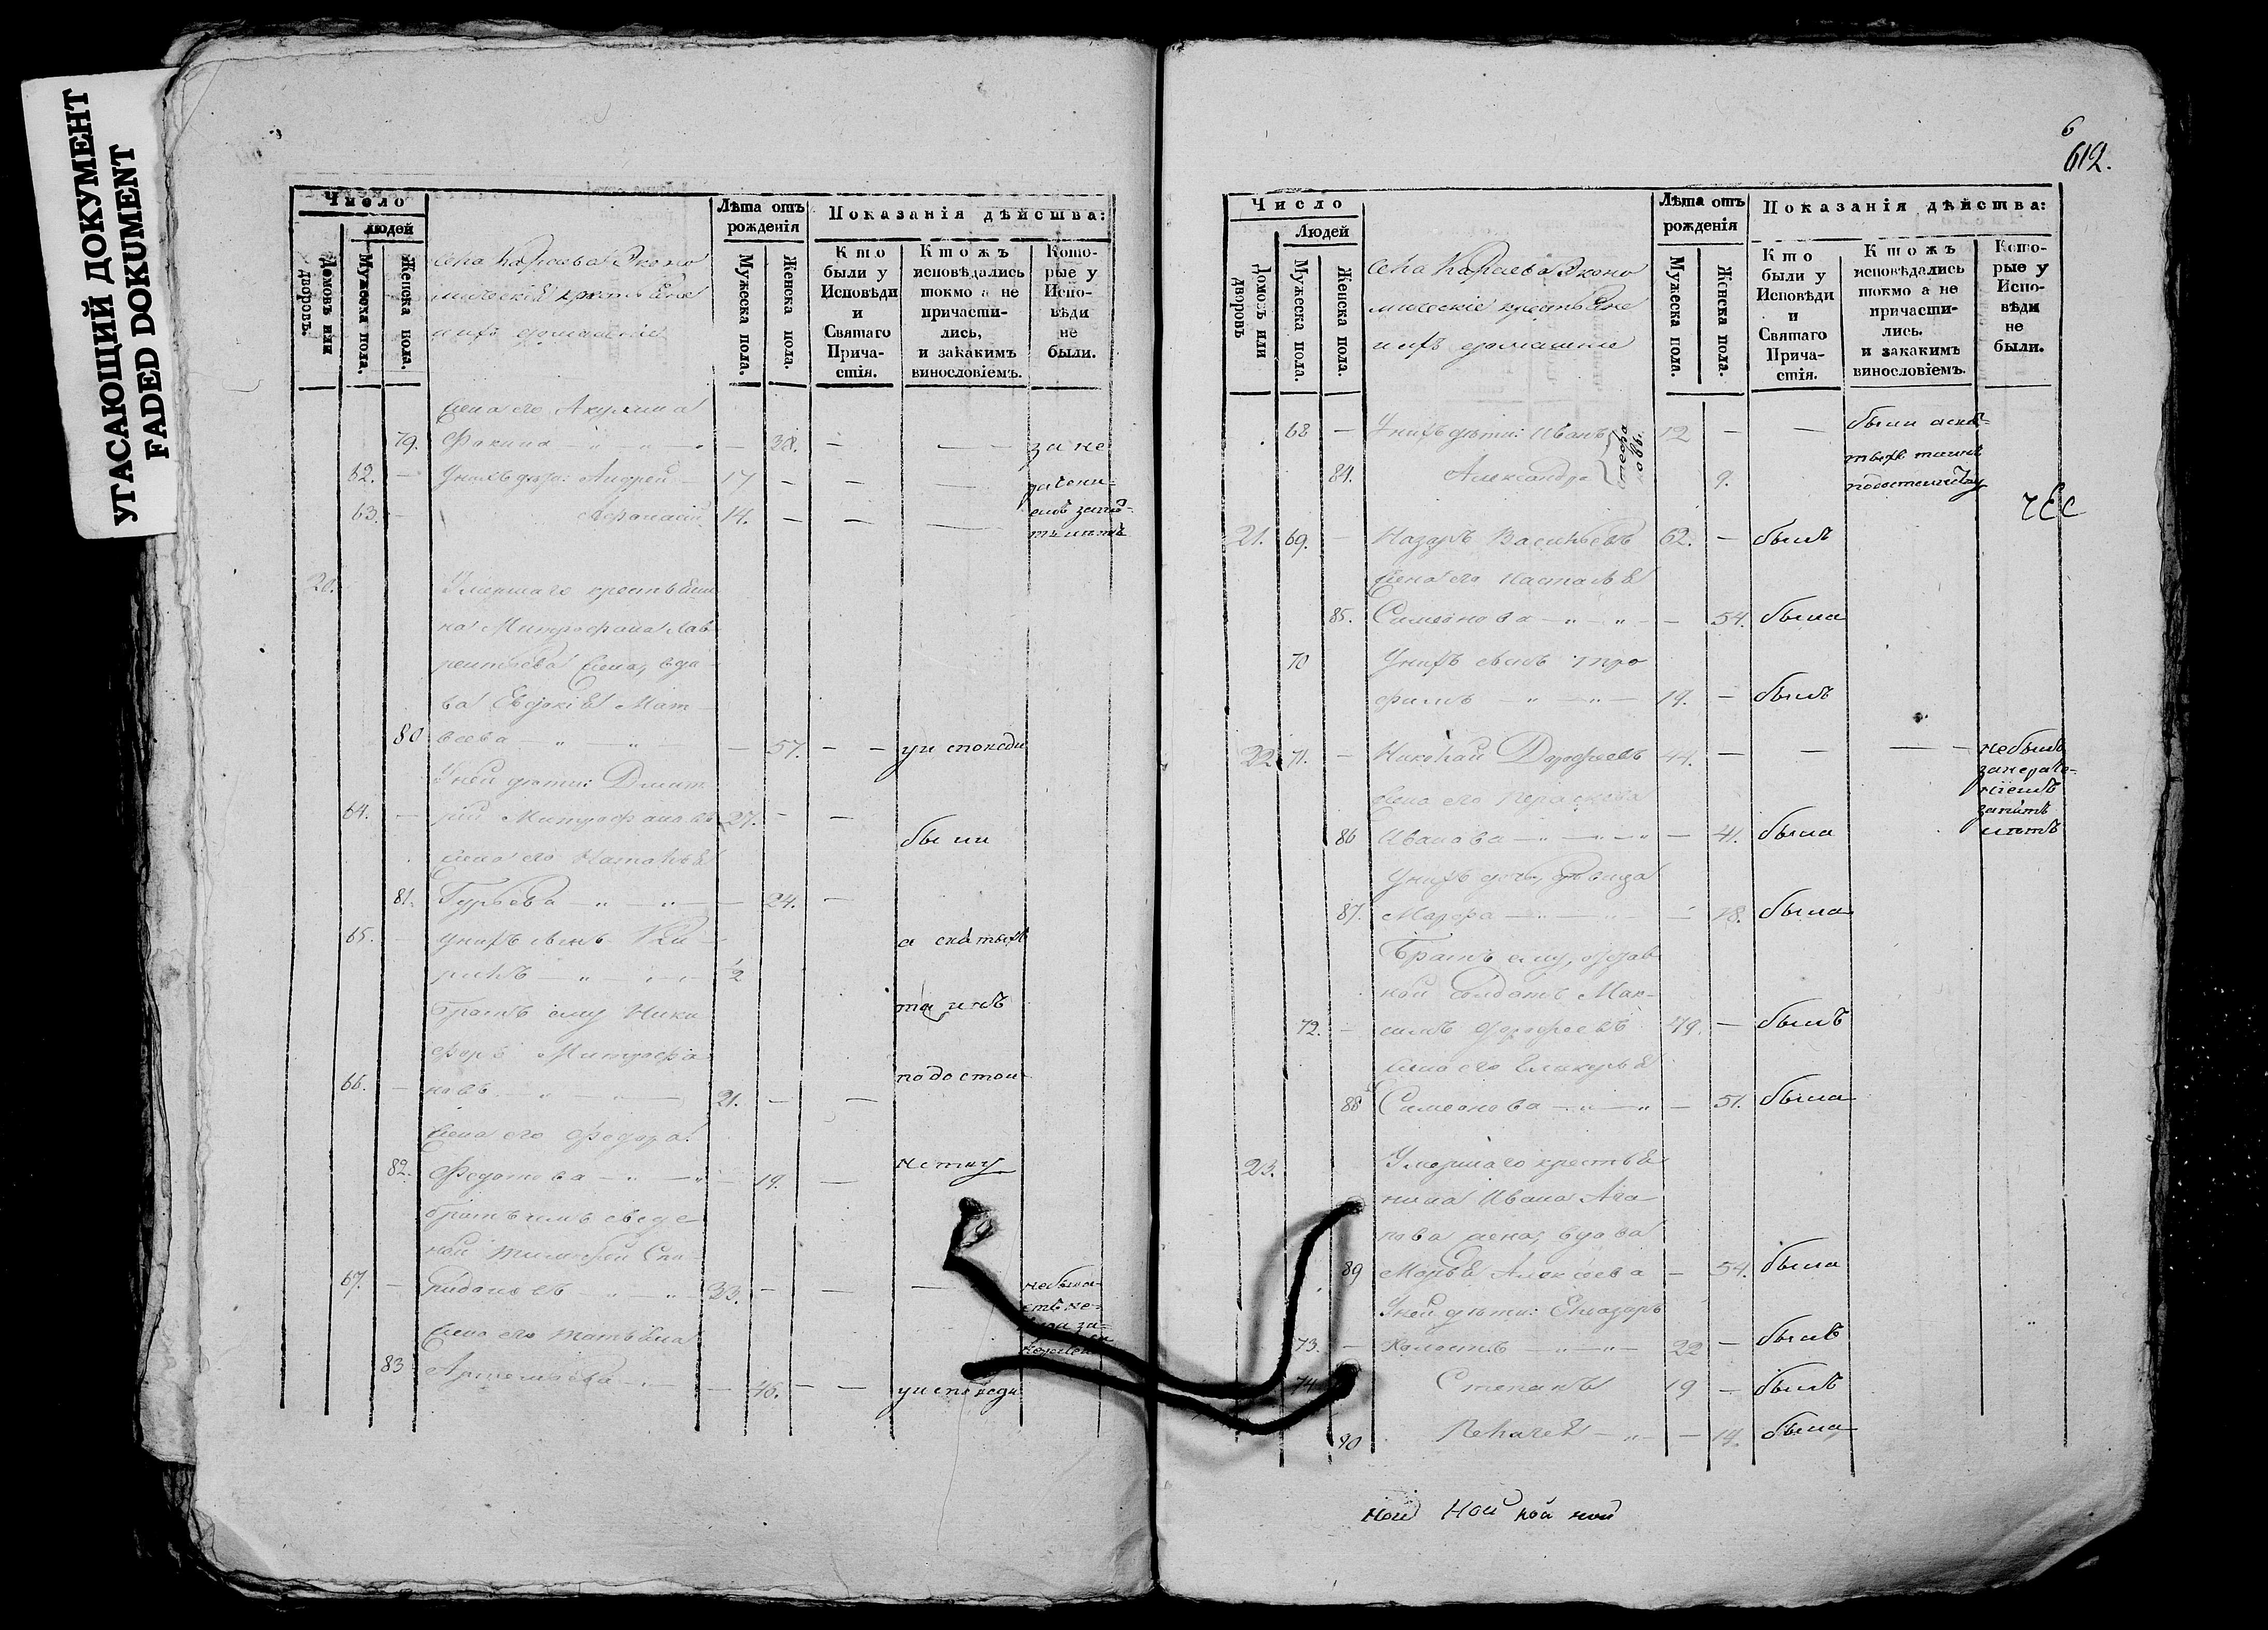 УТАСАЮЩИЙ ДОКУМЕНТ
FADED DOKUMENT
Число
людей
Домовъ или дворовъ.
Мужеска пола.
Женска пола.
села Караева Эконо
мическiя крестьяне
ихъ домашнiе
Лѣта отъ рожденiя
Мужеска пола.
Женска пола.
Показанiя дѣйства:
Кто были у Исповѣди и Святаго Прича-стiя.
Ктожъ исповѣдались токмо а не причасти-лись, и закакимъ винословiемъ.
Кото-рые у Испо-вѣди не были.
жена его Акулина
79. Фокина — 38. — — за не
62. — Унихъ дѣти: Андрей 17 — — —
63. — Афонасiй 14. — — —
20. Умершаго крестьяни
на Митрофана Лав
рентьева жена, вдо
ва Евдокiя Мат
80 веева — " — " — — 57. — — уисповеди
Уней дѣти: Дмит
64. — рiй Митрофановъ 27. — —
были
жена его Наталья
81. Гурьева — " — " — — 24. —
65. — унихъ сынъ Ки
а святыхъ
рилъ — " — 1/2
братъ ему Ники
таинъ
форъ Митрофа
66. — новъ — " — 21. — —
подостои
жена его Федора
82. Федотова — " — " — 19. —
нству
братъ имъ сведе
ной Тимофей Спи
67. — ридоновъ — " — " 33. — — — небыль
жена его Татьяна
83 Артемьева — — 46. — — уисповеди
6
612.
Число
Людей
Домовъ или дворовъ
Мужеска пола.
Женска пола.
села Караева Эконо
мическiе крестьяне
ихъ домашнiе
Лѣта отъ рожденiя
Мужеска пола.
Женска пола.
Показанiя дѣйства:
Кто были у Исповѣди и Святаго Прича-стiя.
Ктожъ исповѣдались токмо а не причасти-лись. и закакимъ винословiемъ.
Кото-рые у Испо-вѣди не были.
68 — Унихъ дѣти: Иванъ 12 — — были асвя-
тыхъ таинъ
84. Александра 9. подостоинству
21. 69. — Назаръ Васильевъ 62. — былъ
жена его Наталья
85. Симеонова — " — " — — 54. была
70 Унихъ сынъ Тро
фимъ — " — " — 19. — былъ
22. 71. — Николай Дорофеевъ 44. — — — небылъ
жена его Параскева
86 Иванова — " — " — " — 41. была
Унихъ дочь, девица
87. Марфа — " — " — 18. была
Братъ ему, отстав
ной солдатъ Мак-
72. — симъ Дорофеевъ 49. — былъ
жена его Гликерья
88 Симеонова — " — " — 51. была
23. Умершаго крестья
нина Ивана Ага
пова жена, вдова
89 Марья Алексеева — 54. была
Уней дѣти: Елиазаръ
73. — холостъ — " — " — 22 — былъ
74. Степанъ 19 — былъ
90 Пелагея — " — — 14. была
ной ной ной ной